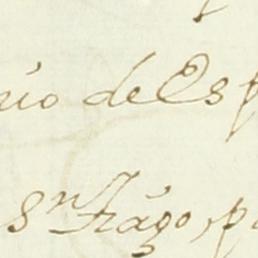 rio de Esp
Sn Tiago, p